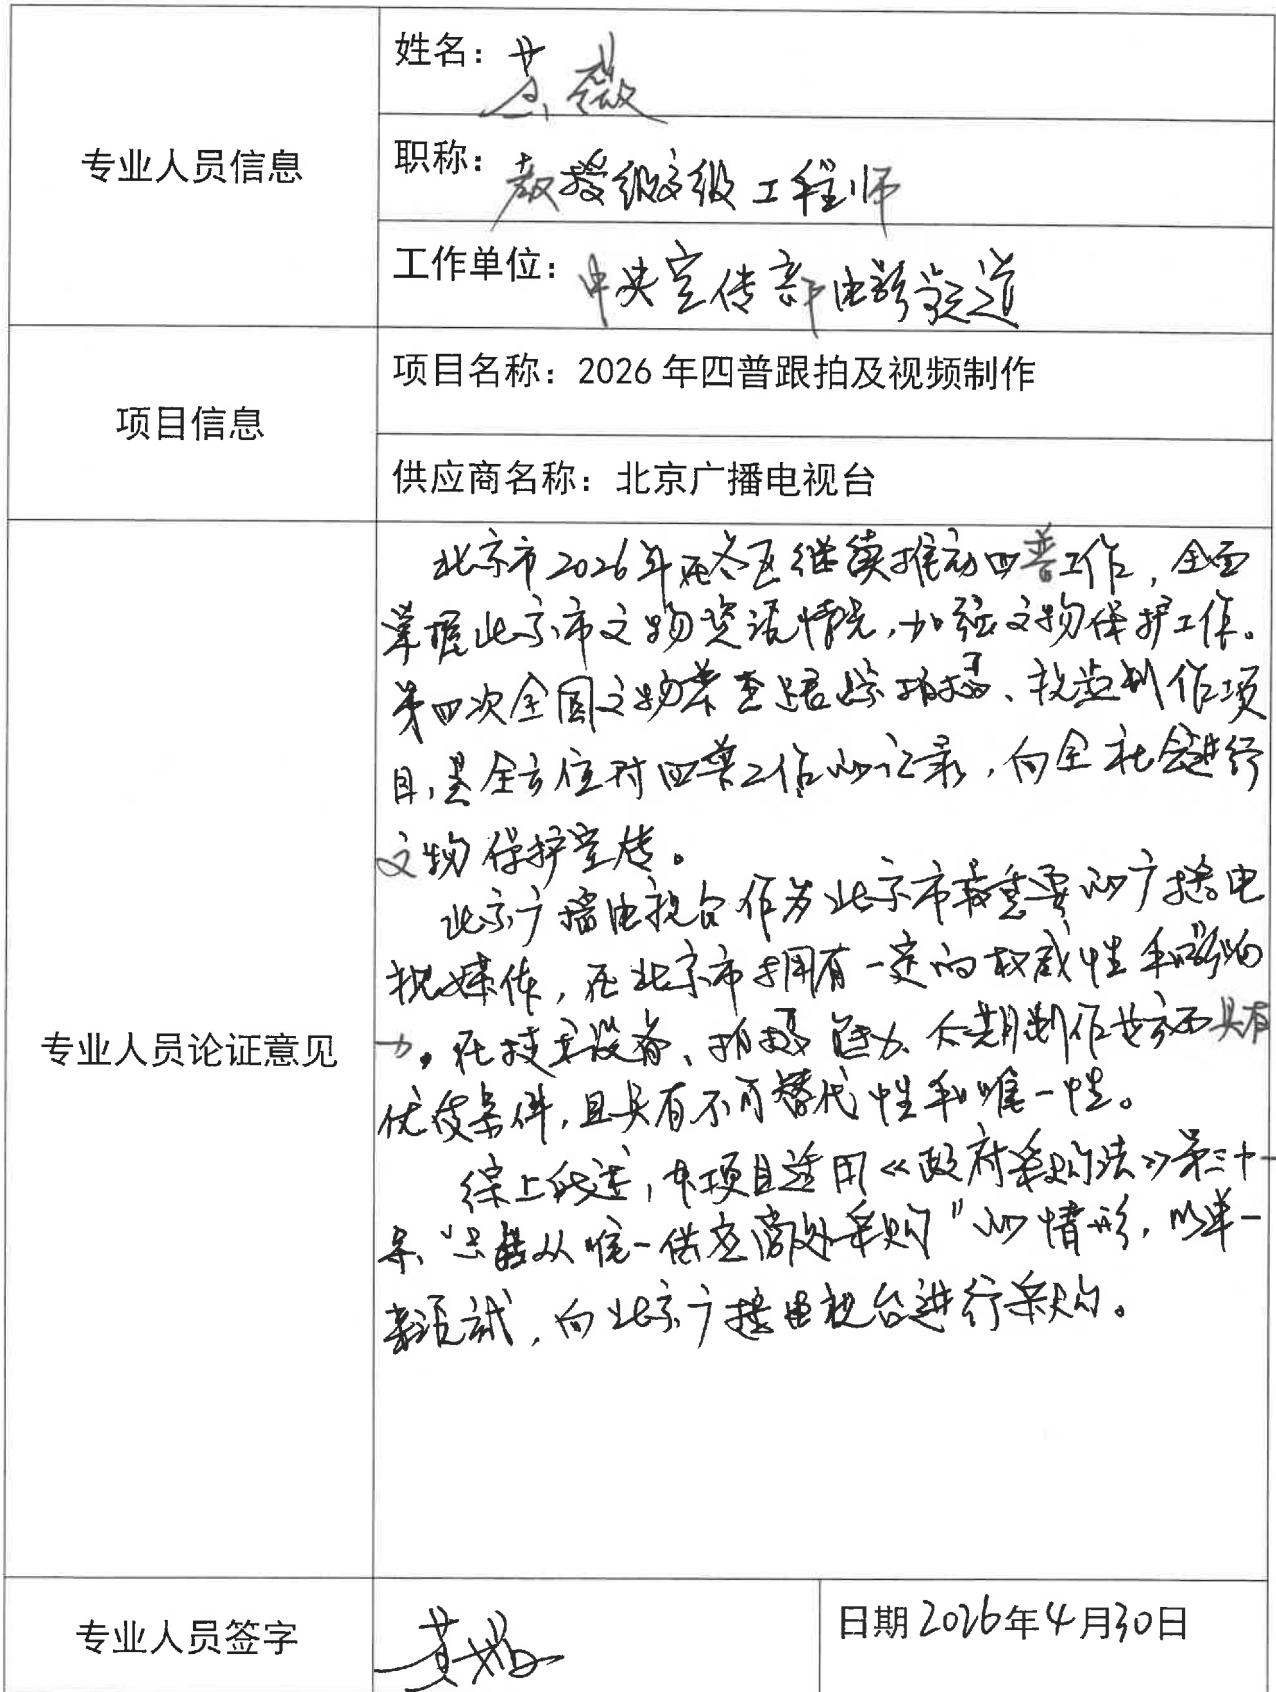 专业人员信息
姓名：黄薇
职称：教授级高级工程师
工作单位：中央宣传部电影频道
项目信息
项目名称：2026年四普跟拍及视频制作
供应商名称：北京广播电视台
专业人员论证意见
北京市2026年在各区继续推动四普工作，全面
掌握北京市文物资源情况，加强文物保护工作。
第四次全国文物普查跟踪拍摄、视频制作项
目，是全方位对四普工作的记录，向全社会进行
文物保护宣传。
北京广播电视台作为北京市最重要的广播电
视媒体，在北京市拥有一定的权威性和影响
力。在技术设备、拍摄能力、后期制作等方面具有
优良条件，且具有不可替代性和唯一性。
综上所述，本项目适用《政府采购法》第三十一
条“只能从唯一供应商处采购”的情形，以单一
来源式，向北京广播电视台进行采购。
专业人员签字
黄薇
日期2026年4月30日